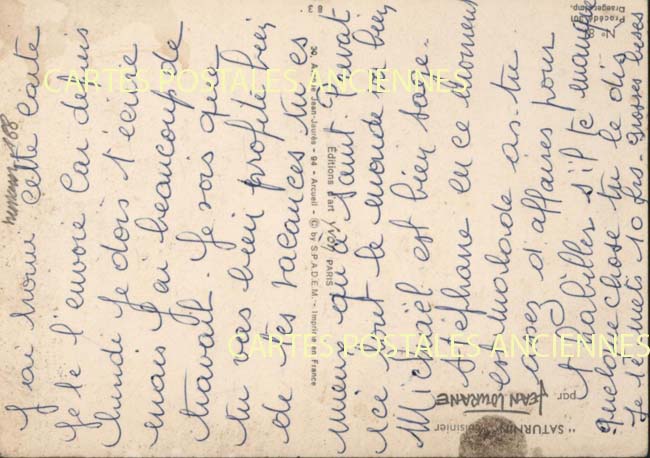 J'ai trouvé cette carte
Je te l'envoie car depuis
lundi je dois t'écrire
mais j'ai beaucoup de
travail. Je vois que
tu vas bien profite bien
de tes vacances tu es
mieux qu'à Paris
ici tout le monde va bien
Michaël est bien sage.
Stéphane en ce moment
est malade as-tu
assez d'affaires pour
t'habiller s'il te manque
quelque chose tu le dis
Je te mets 10 frs. Grosses bises
"SATURNIN" cuisinier
par JEAN LOURANE
Editions d'art YVON PARIS
30, Jean-Jaurès - 94 - Arcueil - © by S.P.A.D.E.M. - Imprimé en France
Procédé 301
Draeger Imp.
CARTES POSTALES ANCIENNES
CARTES POSTALES ANCIENNES